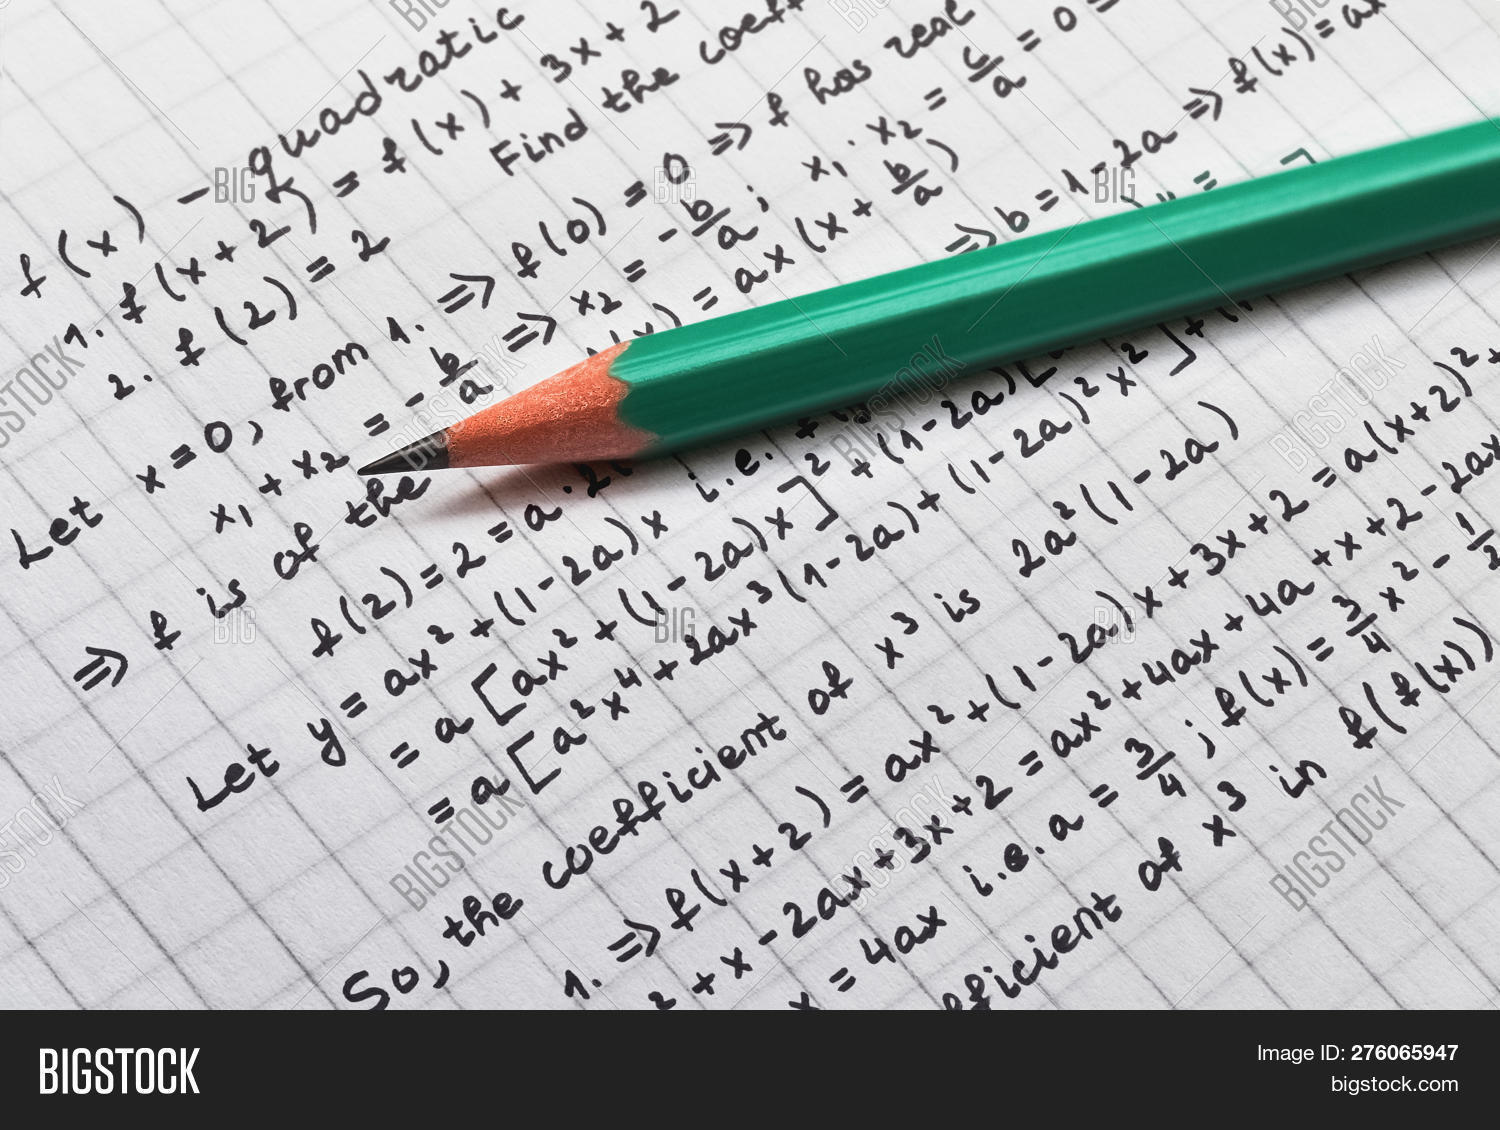 f(x) - quadratic
1. f(x+2) = f(x) + 3x + 2
2. f(2) = 2 Find the coeff
Let x=0, from 1. => f(0) = 0 => f has real
x₁ + x₂ = - b/a => x₂ = - b/a ; x₁ . x₂ = c/a = 0 =
=> f is of the (x) = ax(x + b/a)
f(2) = 2 = a.2 => b = 1-2a => f(x) = ax
Let y = ax² + (1-2a)x i.e.
= a[ax² + (1-2a)x]² + (1-2a)[
= a[a²x⁴ + 2ax³(1-2a) + (1-2a)²x²] +
So, the coefficient of x³ is 2a²(1-2a)
1. => f(x+2) = ax² + (1-2a)x + 3x + 2 = a(x+2)² +
² + x - 2ax + 3x + 2 = ax² + 4ax + 4a + x + 2 - 2ax
x = 4ax i.e. a = 3/4 ; f(x) = 3/4 x² - 1/2
fficient of x³ in f(f(x))
BIGSTOCK
Image ID: 276065947
bigstock.com